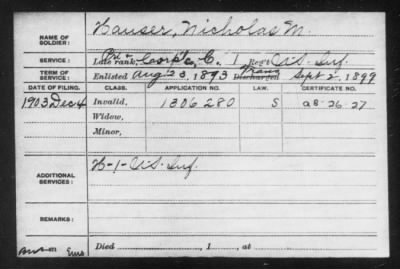 NAME OF SOLDIER: Hauser, Nicholas M.
SERVICE: Late rank, Pvt & Corp Co. C, 1 Reg't U.S. Inf.
TERM OF SERVICE: Enlisted Aug 23, 1893 Discharged Trans Sept 2, 1899
DATE OF FILING. CLASS. APPLICATION NO. LAW. CERTIFICATE NO.
1903 Dec 4 Invalid, 1306280 S 
Widow,
Minor,
ADDITIONAL SERVICES: H-1-U.S. Inf.
REMARKS:
Died , 1 , at